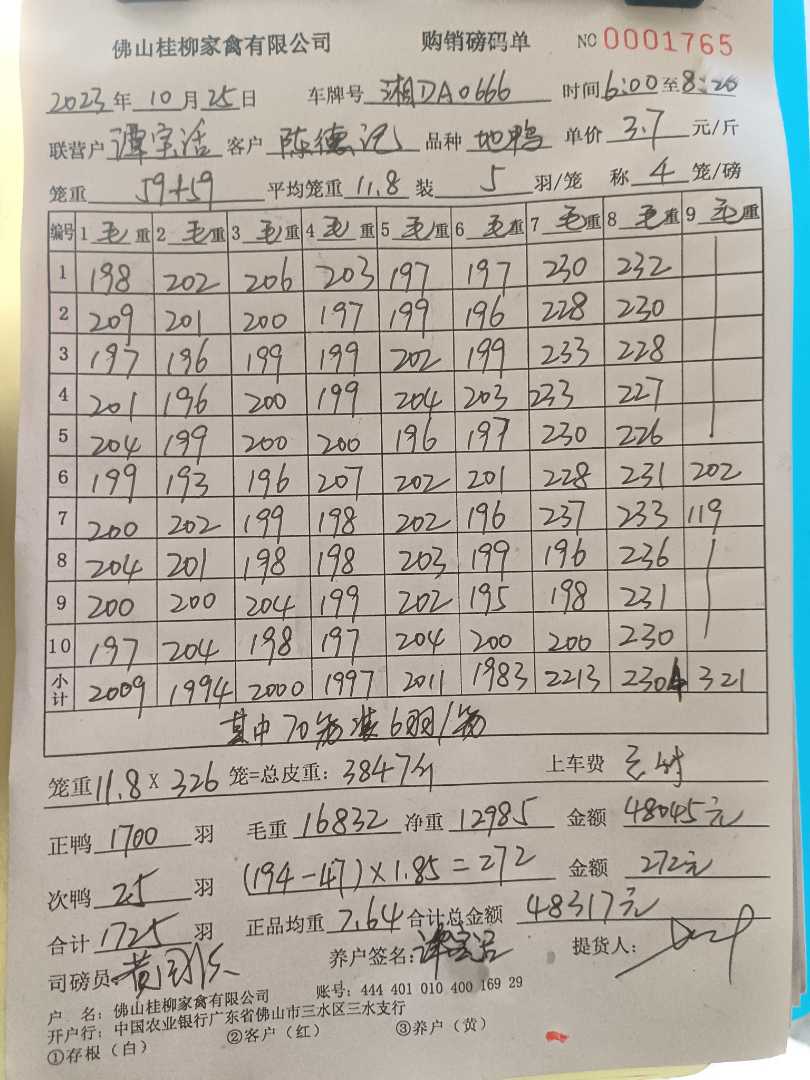 佛山桂柳家禽有限公司 购销磅码单 NO 0001765
2023年10月25日 车牌号 湘DA0666 时间6:00至8:20
联营户 谭宝活 客户 陈德记 品种 地鸭 单价 3.7 元/斤
笼重 59+59 平均笼重 11.8 装 5 羽/笼 称 4 笼/磅
编号 1毛重 2毛重 3毛重 4毛重 5毛重 6毛重 7毛重 8毛重 9毛重
1 198 202 206 203 197 197 230 232
2 209 201 200 197 199 196 228 230
3 197 196 199 199 202 199 233 228
4 201 196 200 199 204 203 233 227
5 204 199 200 200 196 197 230 226
6 199 193 196 207 202 201 228 231 202
7 200 202 199 198 202 196 237 233 119
8 204 201 198 198 203 199 196 236
9 200 200 204 199 202 195 198 231
10 197 204 198 197 204 200 200 230
小计 2009 1994 2000 1997 2011 1983 2213 2304 321
其中70笼装6羽/笼
笼重11.8×326笼=总皮重：3847斤 上车费
正鸭 1700 羽 毛重 16832 净重 12985 金额 48045元
次鸭 25 羽 (194-47)×1.85=272 金额 272元
合计 1725 羽 正品均重 7.64 合计总金额 48317元
司磅员： 养户签名：谭宝活 提货人：
户 名：佛山桂柳家禽有限公司 账号：444 401 010 400 169 29
开户行：中国农业银行广东省佛山市三水区三水支行
①存根（白） ②客户（红） ③养户（黄）